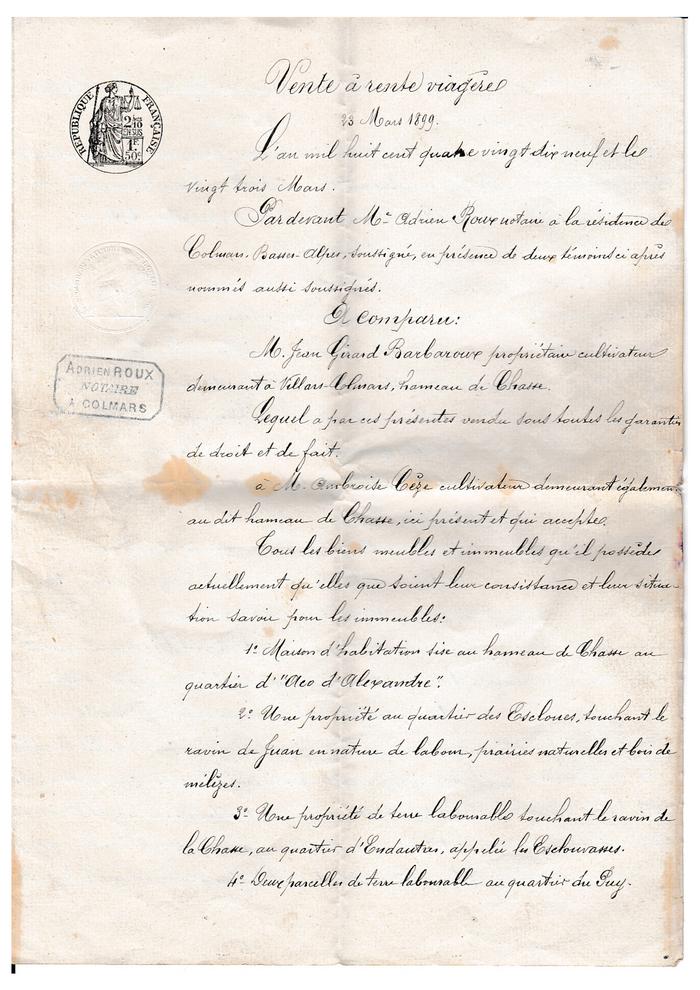 Vente à rente viagère
23 Mars 1899.
RÉPUBLIQUE FRANÇAISE
2/10
EN SUS
1F
50c
L'an mil huit cent quatre vingt dix neuf et le
vingt trois Mars.
Pardevant Me Adrien Roux notaire à la résidence de
Colmars, Basses-Alpes, soussigné, en présence de deux témoins ci après
nommés aussi soussignés.
A comparu:
M. Jean Girard Barbaroux propriétaire cultivateur
demeurant à Villars-Colmars, hameau de Chasse.
ADRIEN ROUX
NOTAIRE
A COLMARS
Lequel a par ces présentes vendu sous toutes les garanties
de droit et de fait.
à M. Ambroise Cèze cultivateur demeurant également
au dit hameau de Chasse, ici présent et qui accepte.
Tous les biens meubles et immeubles qu'il possède
actuellement qu'elles que soient leur consistance et leur situa-
tion savoir pour les immeubles:
1° Maison d'habitation sise au hameau de Chasse au
quartier d'"Aco d'Alexandre".
2° Une propriété au quartier des Escloues, touchant le
ravin de Juan en nature de labour, prairies naturelles et bois de
mélèzes.
3° Une propriété de terre labourable touchant le ravin de
la Chasse, au quartier d'Endautres, appelée les Esclouvasses.
4° Deux parcelles de terre labourable au quartier du Puy.